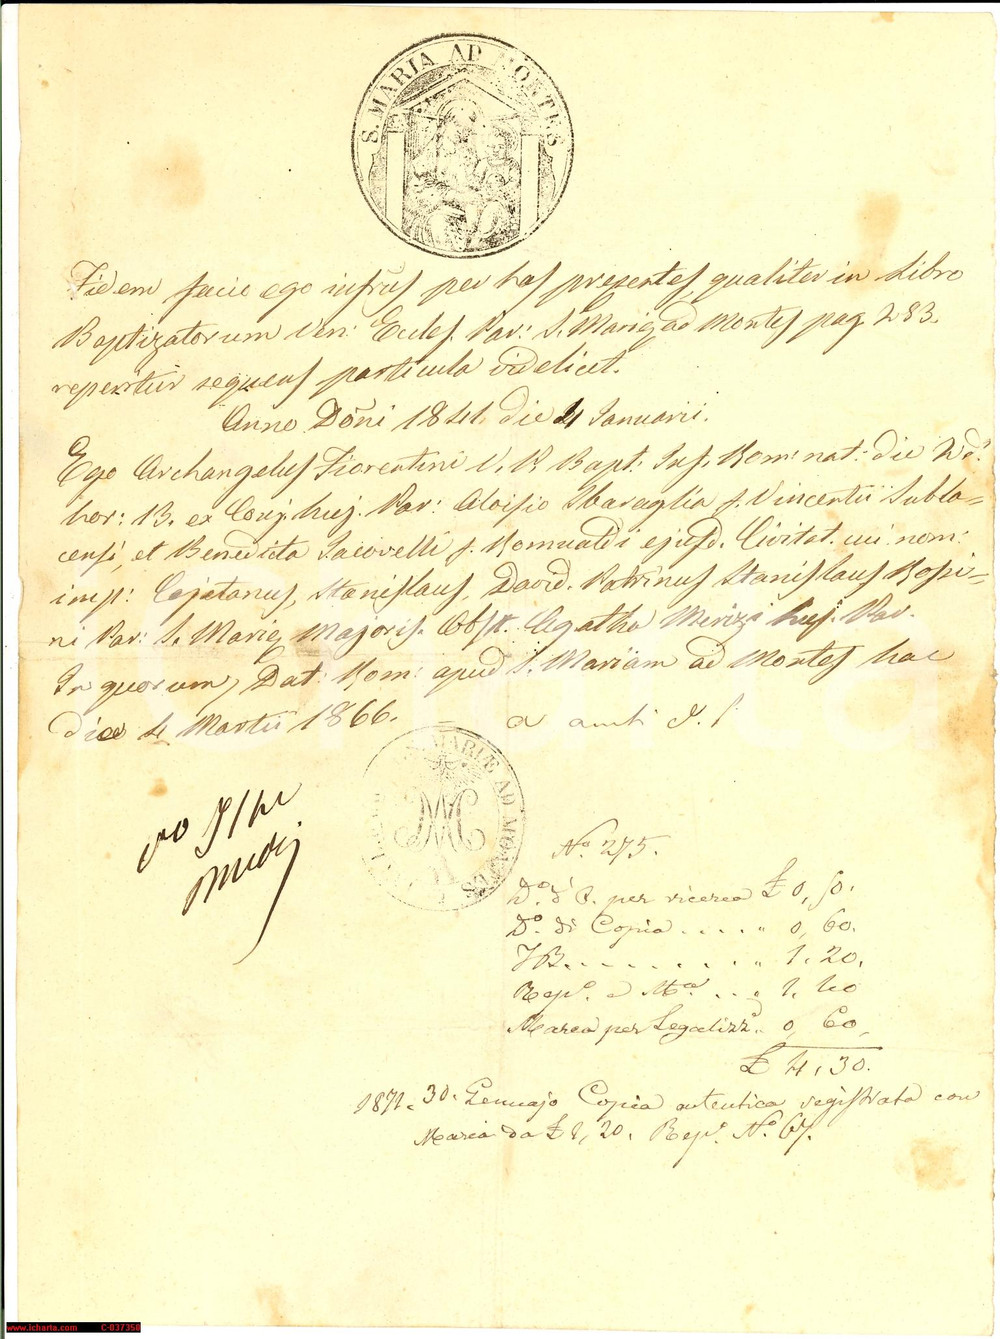 S. MARIA AD MONTES
Fidem facio ego infrūs per has presentes qualiter in Libro
Baptizatorum Ven: Eccles. Par: S. Mariæ ad Montes pag. 283.
reperitur sequens particula videlicet.
Anno Dōni 1841. die 4 Januarii.
Ego Archangelus Fiorentini V. P. Bapt: Inf. Rom: nat: die 2 dꝰ.
hor: 13. ex Conj. huj. Par: Aloisio Sbaraglia f. Vincentii Subla=
censi, et Benedicta Jacovelli f. Romualdi ejusd. Civitat. cui nom:
imp: Cajetanus, Stanislaus, David. Patrinus Stanislaus Rosi=
ni Par: S. Mariæ Majoris. Obst. Agatha Merizi huj. Par.
In quorum, Dat: Rom: apud S. Mariam ad Montes hac
die 4 Martii 1866.
MARIÆ AD MONTES
N.º 275.
D.º d' P. per ricerca £ 0, 50.
D.º di Copia . . . . " 0, 60.
J B. . . . . . . . " 1. 20.
Rep.º e M.ª . . " 1. 40
Marca per Legalizz. " 0, 60.
£ 4, 30.
1871. 30. Gennajo Copia autentica registrata con
Marca da £ 1, 20. Rep.º N.º 67.
www.icharta.com C-037350